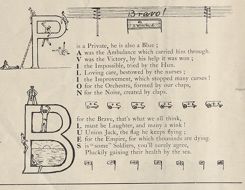 Bravo!
P is a Private, he is also a Blue;
A was the Ambulance which carried him through.
V was the Victory, by his help it was won;
I the Impossible, tried by the Hun.
L Loving care, bestowed by the nurses;
I the Improvement, which stopped many curses!
O for the Orchestra, formed by our chaps,
N for the Noise, by
B for the Brave, that's what we all think,
L must be Laughter, and many a wink!
U Union Jack, the flag he keeps flying;
E for the Empire, for which thousands are dying.
S is "some" Soldiers, you'll surely agree,
Pluckily gaining their health by the sea.